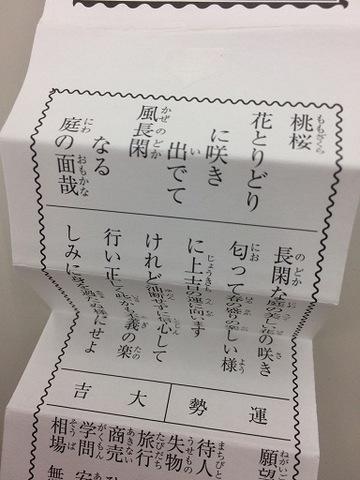 桃桜
花とりどり
に咲き
出でて
風長閑
なる
庭の面哉
長閑な庭の に花の咲き
匂って春の盛りの楽しい様
に上吉の運に向います
けれど油断せずに信心して
行い正して の楽
しみに 様にせよ
運勢
大吉
願望
待人
失物
旅行
商売
学問
相場